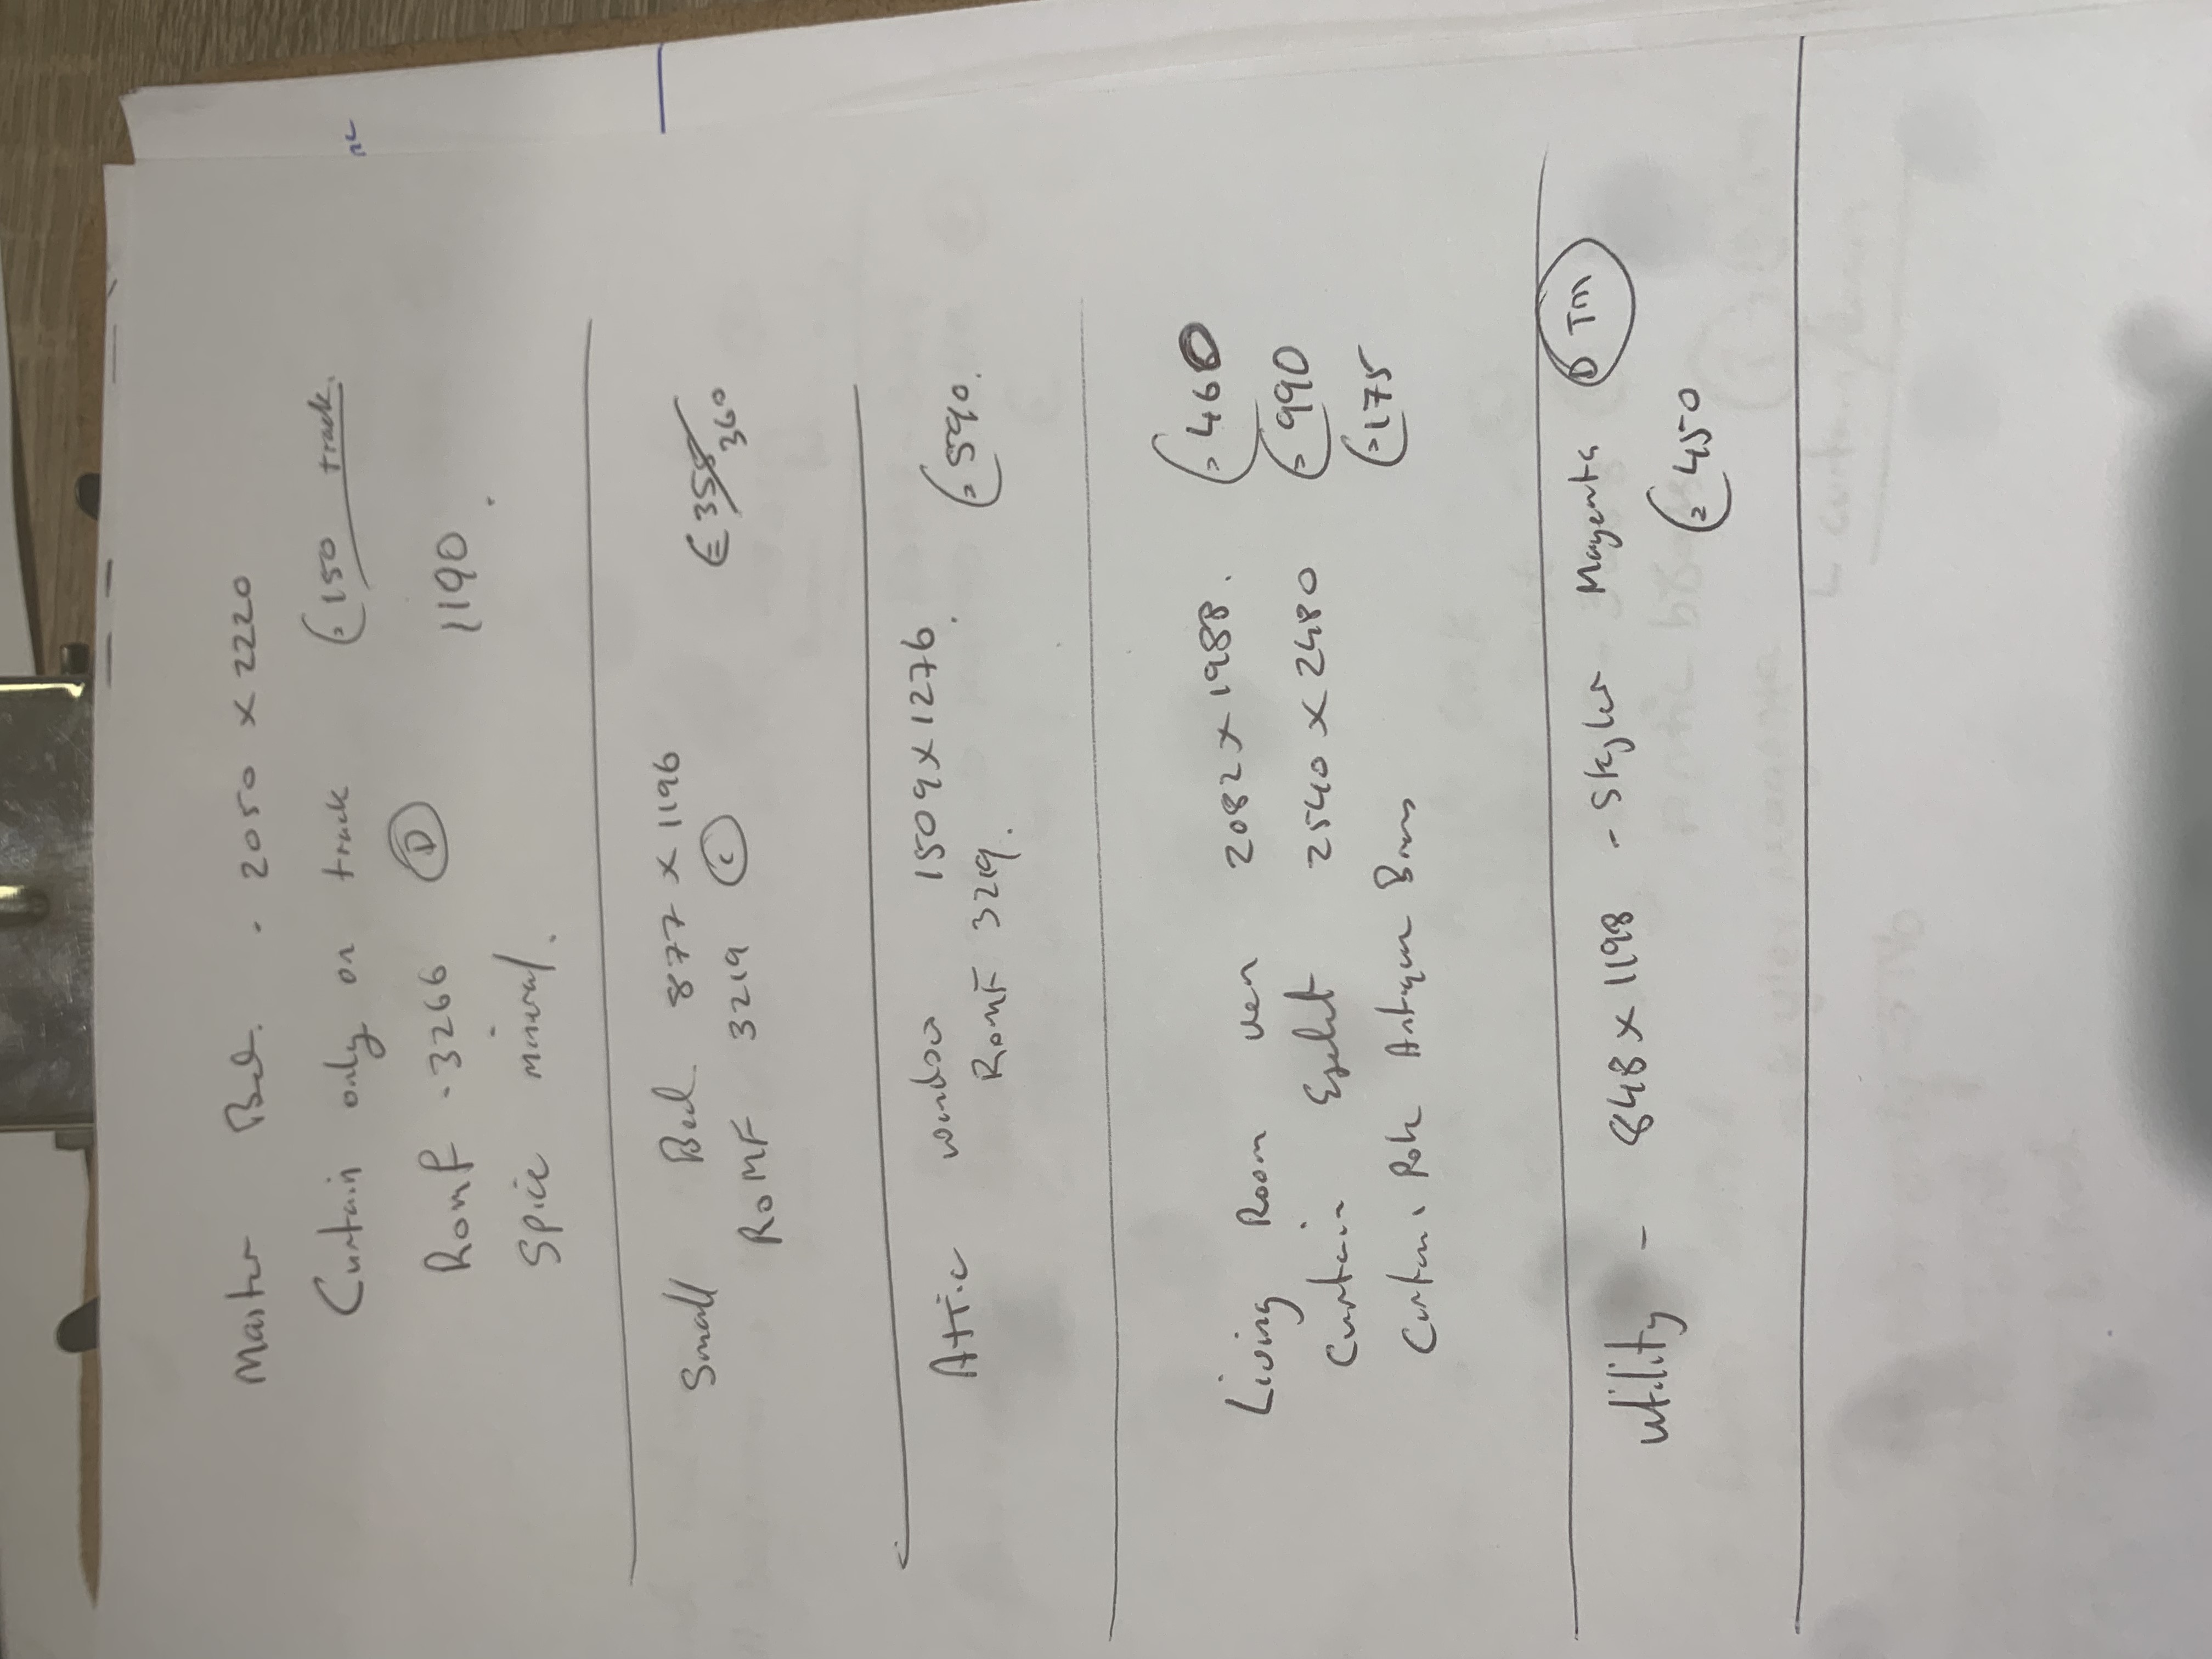 Master Bed. - 2050 x 2220
Curtain only on track €150 track.
Romf - 3266 D 1190.
Spice mineral.
Small Bed. 877 x 1196 €355 360
ROMF 3219 C
Attic window 1509 x 1276. €590.
Romf 3219.
Living Room Ven 2082 x 1988. €460
Curtain 2540 x 2480 €990
Curtain Pole Antique Brass €175
Utility - 848 x 1198 - Skyler Magenta TM
€450